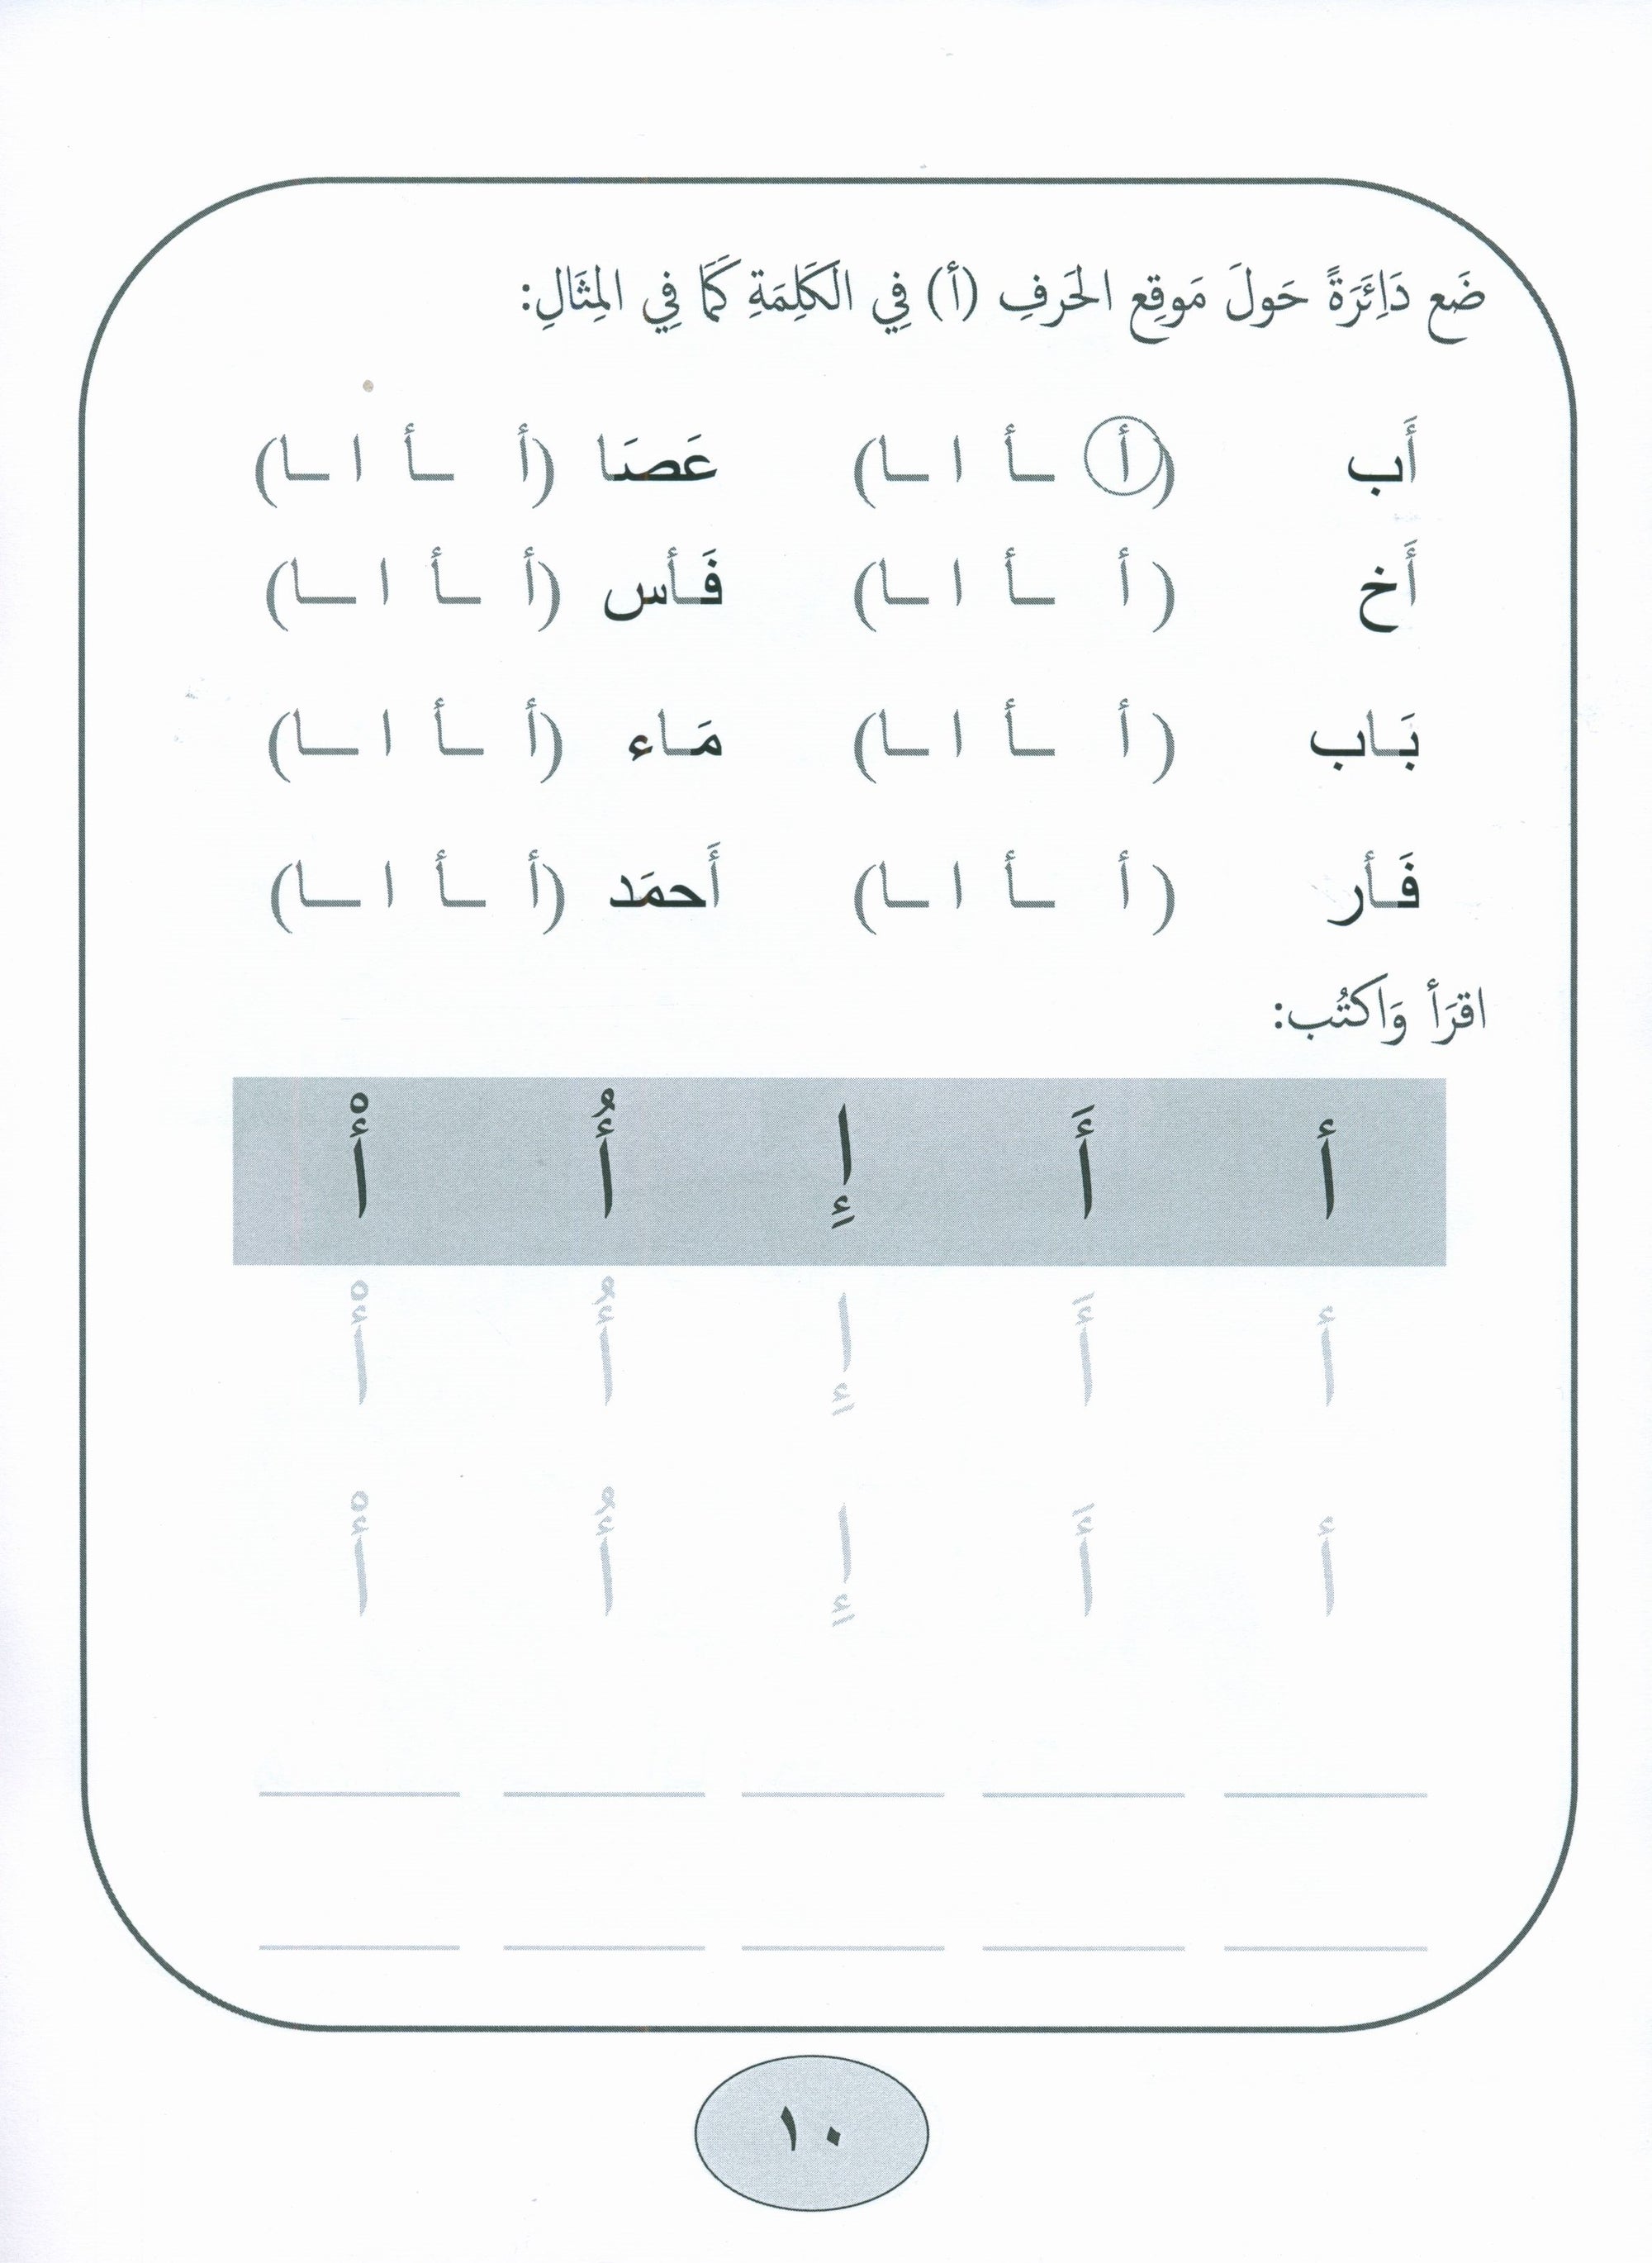 ضَع دَاِئَرَةً حَولَ مَوقِع الحَرفِ (أ) فِي الكَلِمَةِ كَمَا فِي المِثَالِ:
أَب (أ ـأ ا ـا) عَصَا (أ ـأ ا ـا)
أَخ (أ ـأ ا ـا) فَأس (أ ـأ ا ـا)
بَاب (أ ـأ ا ـا) مَاء (أ ـأ ا ـا)
فَأر (أ ـأ ا ـا) أَحمَد (أ ـأ ا ـا)
اقرَأ وَاكتُب:
أ أَ إِ أُ أْ
أ أَ إِ أُ أْ
أ أَ إِ أُ أْ
١٠